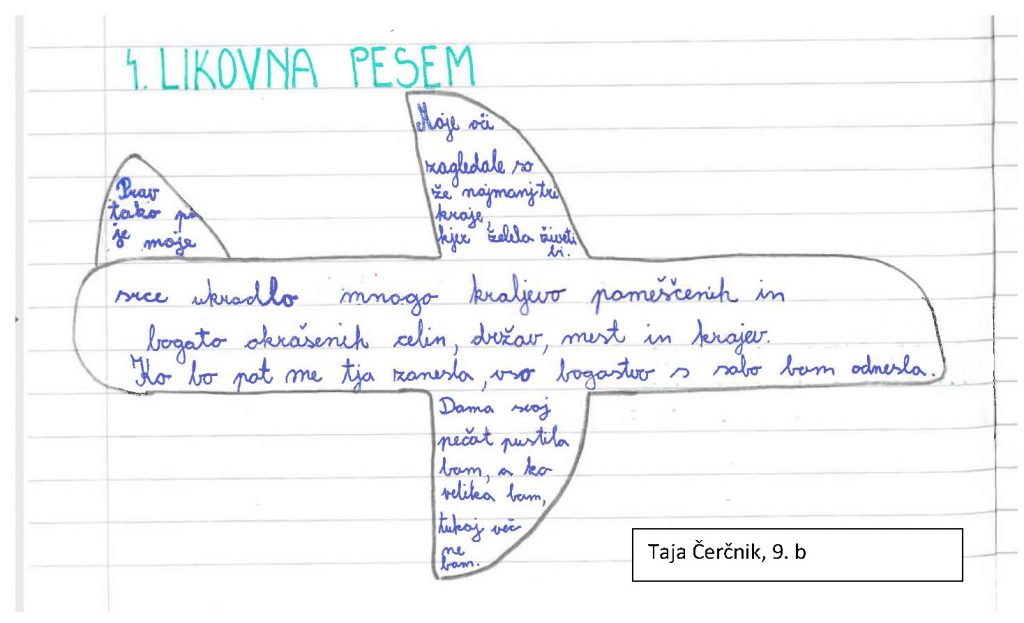 4. LIKOVNA PESEM
Moje oči
zagledale so
že najmanj tri
kraje,
kjer želela živeti
bi.
Prav
tako pa
je moje
srce ukradlo mnogo kraljevo pomeščenih in
bogato okrašenih celin, držav, mest in krajev.
Ko bo pot me tja zanesla, vso bogastvo s sabo bom odnesla.
Doma svoj
pečat pustila
bom, a ko
velika bom,
tukaj več
ne
bom.
Taja Čerčnik, 9. b